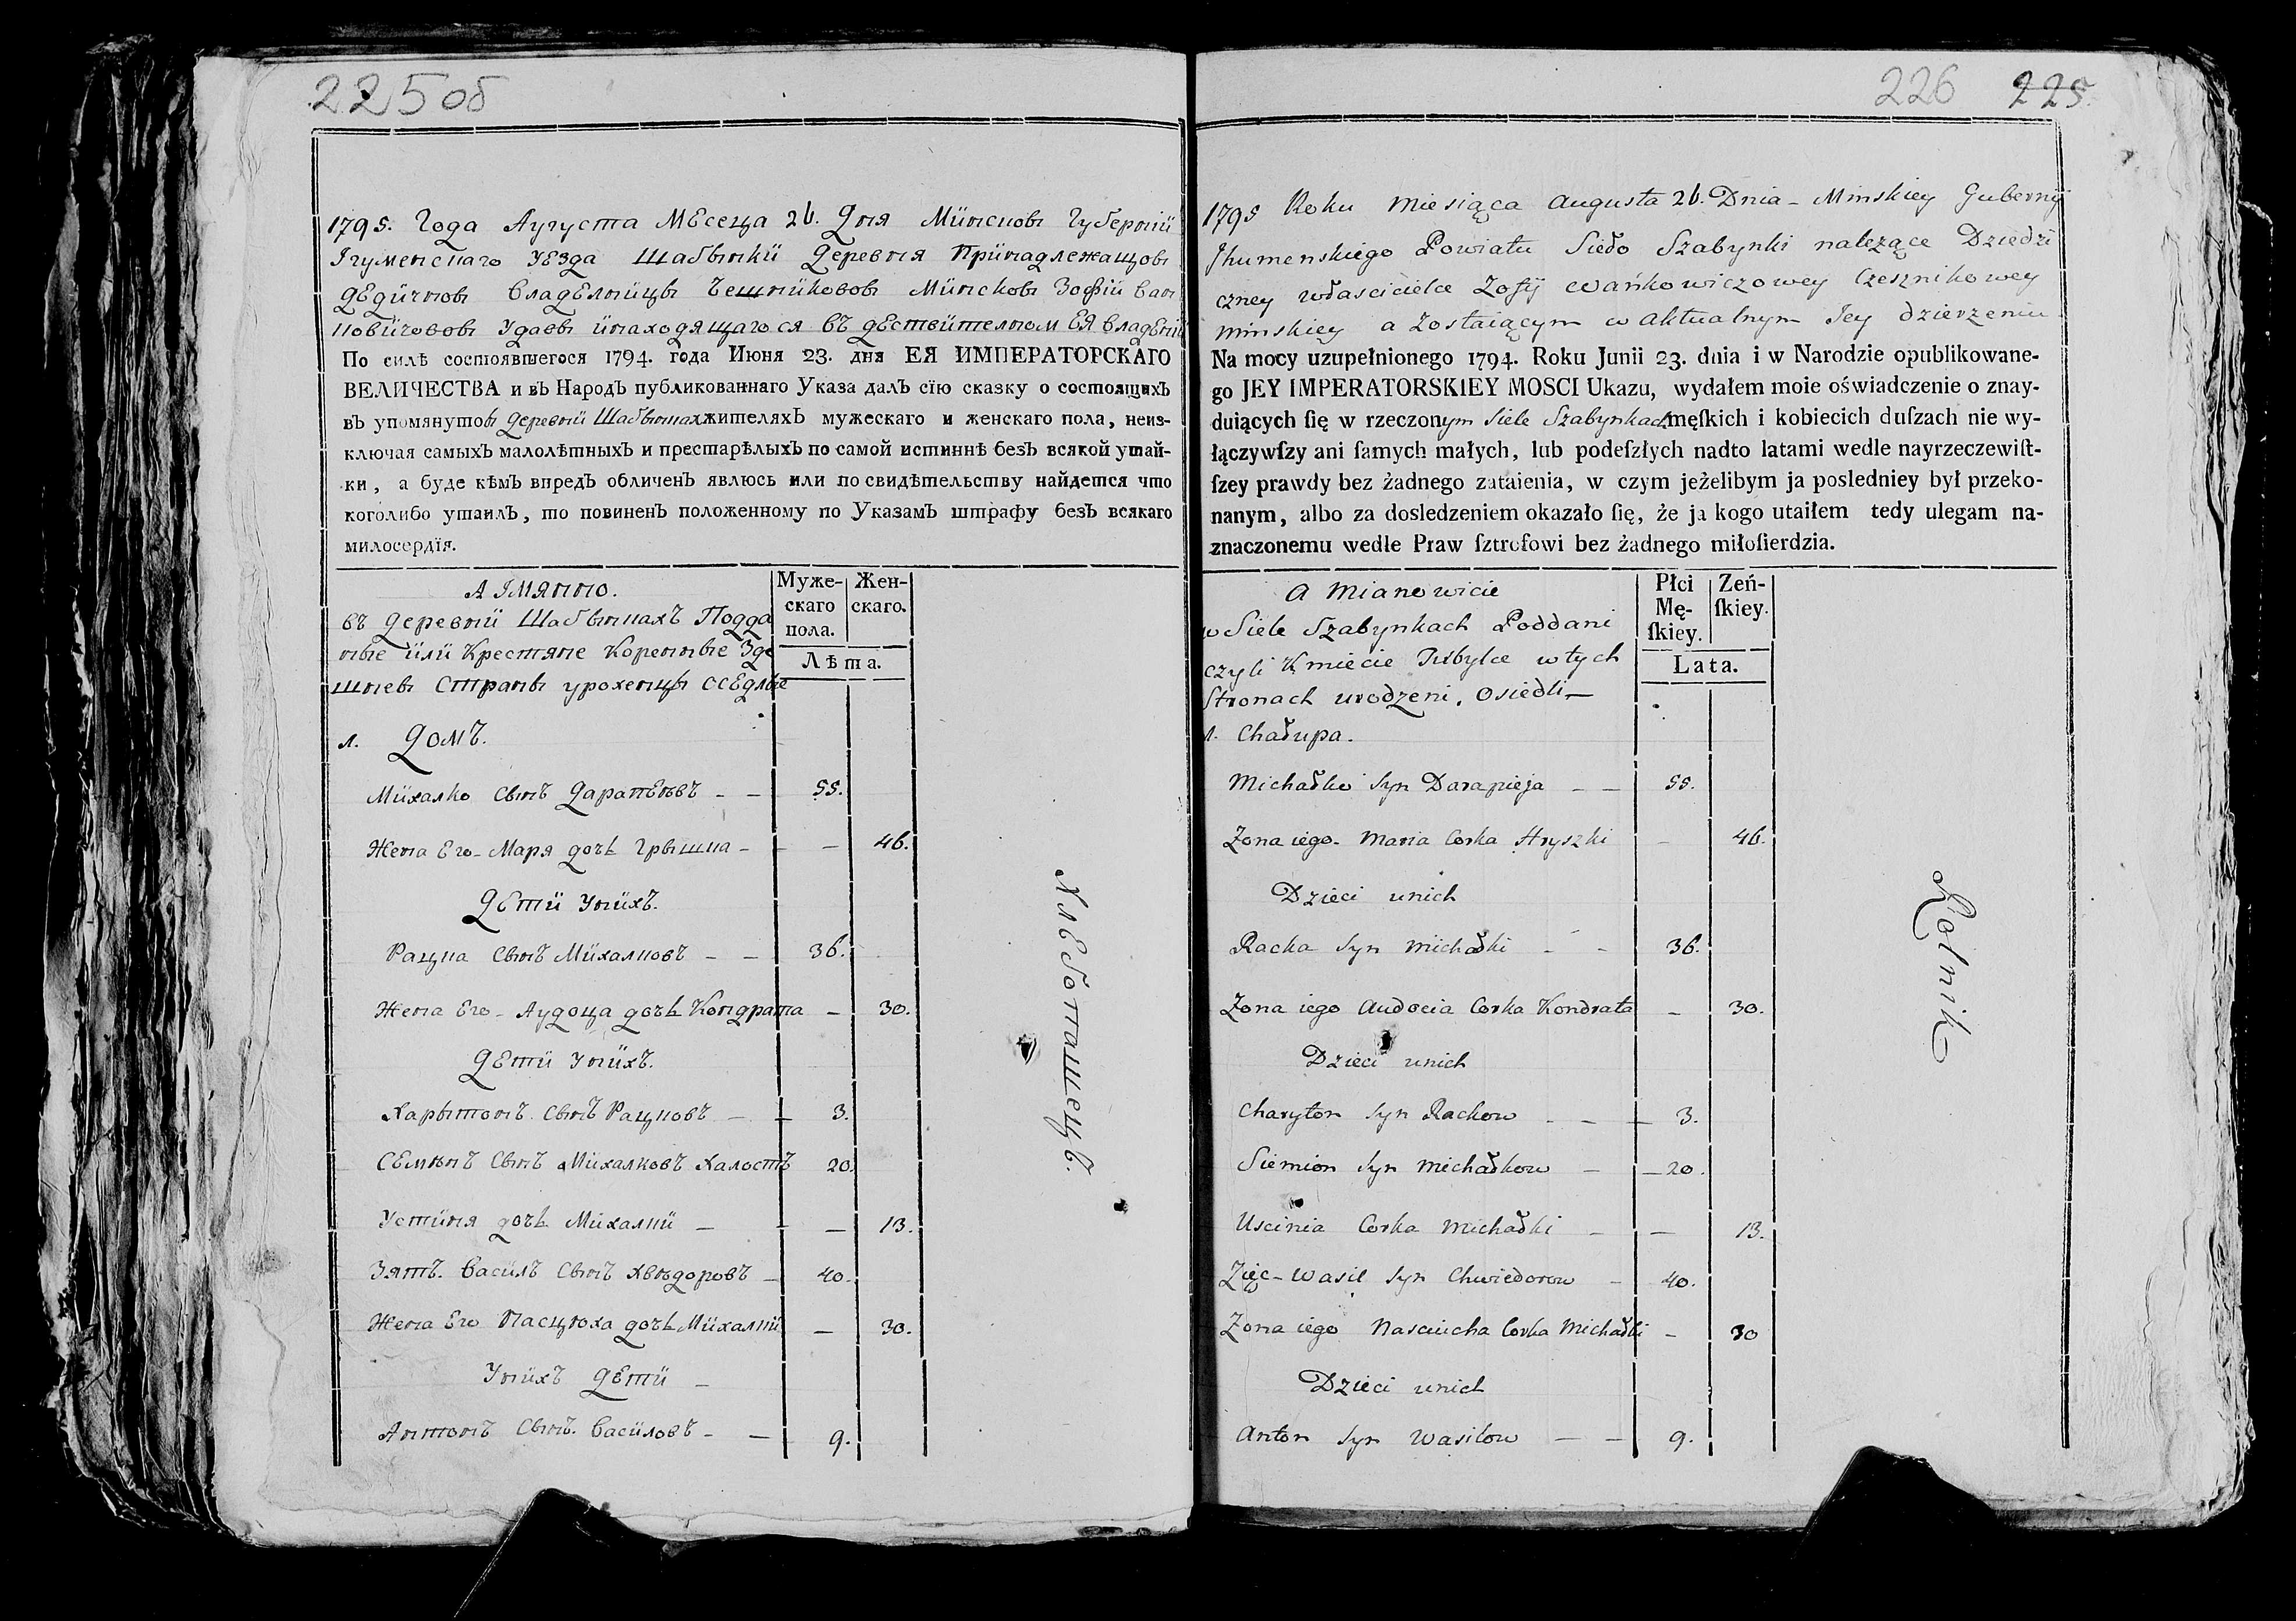 225об
1795. Года Аугуста МЕсеца 26. Дня Минсков Губернии
Ігуменскаго УЕзда Шабынки Деревня Принадлежащов
ДЕдичнов ВладЕлницы Чешниковов Минсков Зофии Ван
ковичовов Удаев инаходящагося въ дЕствителном ЕЯ владЕнии
По силѣ состоявшегося 1794. года Июня 23. дня ЕЯ ИМПЕРАТОРСКАГО
ВЕЛИЧЕСТВА и въ Народъ публикованнаго Указа далъ сїю сказку о состоящихъ
въ упомянутов деревни Шабынках жителяхъ мужескаго и женскаго пола, неиз-
ключая самыхъ малолѣтныхъ и престарѣлыхъ по самой истиннѣ безъ всякой утай-
ки, а буде кѣмъ впредъ обличенъ явлюсь или по свидѣтельству найдется что
коголибо утаилъ, то повиненъ положенному по Указамъ штрафу безъ всякаго
милосердїя.
А ІМЯННО.
въ деревни Шабынкахъ Подда
ные или Крестяне Коренные Зде
шнев Страны урохенцы осЕдлые
Муже-
скаго
пола.
Жен-
скаго.
Лѣта.
1. Домъ.
Михалко сынъ Дарапѣевъ - - 55.
Жена Его - Маря дочь Грышка - - 46.
ДЕти Унихъ.
Рацка сынъ Михалковъ - - 36.
Жена Его - Аудоца дочь Кондрата - 30.
ДЕти Унихъ.
Харытонъ сынъ Рацковъ - - 3.
СЕмѣнъ сынъ Михалковъ халостъ 20.
Устиня дочь Михалки - - - 13.
Зятъ. Василъ сынъ хвѣдоровъ - 40.
Жена Его Насцюха дочь Михалки - 30.
Унихъ дЕти -
Антонъ сынъ. Василовъ - - 9.
ХлЕбопашецъ.
226 225.
1795 Roku Miesiąca Augusta 26. Dnia - Minskiey Gubernij
Jhumenskiego Powiatu Sieło Szabynki nalezące Dziedzi
czney włascicielce Zofij Wańkowiczowey Czesznikowey
Minskiey a Zostaiącym w Aktualnym Jey dzierzeniu
Na mocy uzupełnionego 1794. Roku Junii 23. dnia i w Narodzie opublikowane-
go JEY IMPERATORSKIEY MOSCI Ukazu, wydałem moie oświadczenie o znay-
duiących ſię w rzeczonym Siele Szabynkach męſkich i kobiecich duſzach nie wy-
łączywſzy ani ſamych małych, lub podeſzłych nadto latami wedle nayrzeczewiſt-
ſzey prawdy bez żadnego zataienia, w czym jeżelibym ja posledniey był przeko-
nanym, albo za dosledzeniem okazało ſię, że ja kogo utaiłem tedy ulegam na-
znaczonemu wedle Praw ſztrofowi bez żadnego miłoſierdzia.
A Mianowicie
w Siele Szabynkach Poddani
czyli Kmiecie Przybylce w tych
Stronach urodzeni, Osiedli -
Płci
Mę-
ſkiey.
Zeń-
ſkiey.
Lata.
1. Chałupa.
Michałko Syn Darapieja - - 55.
Zona iego - Maria Corka Hryszki - 46.
Dzieci unich
Racka Syn Michałki - - 36.
Zona iego Audocia Corka Kondrata - 30.
Dzieci unich
Charyton Syn Rackow - - - 3.
Siemion Syn Michałkow - - 20.
Uscinia Corka Michałki - - 13.
Zięc - Wasil Syn Chwiedorow - 40.
Zona iego Nasciucha Corka Michałki - 30
Dzieci unich
Anton Syn Wasilow - - 9.
Rolnik